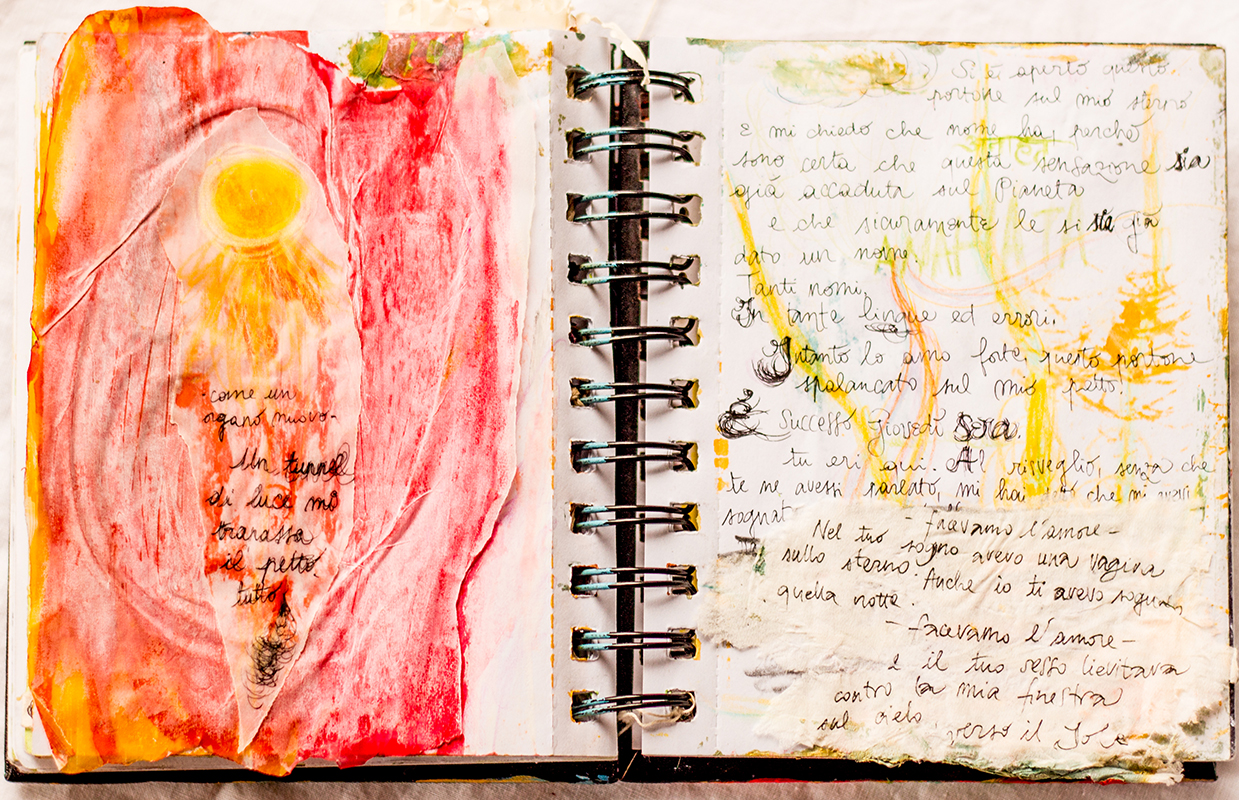 -come un
organo nuovo-
Un tunnel
di luce mi
trapassa
il petto,
tutto.
Si è aperto questo
portone sul mio sterno
E mi chiedo che nome ha, perchè
sono certa che questa sensazione sia
già accaduta sul Pianeta
e che sicuramente le si sia già
dato un nome.
Tanti nomi.
In tante lingue ed errori.
Intanto lo amo forte, questo portone
spalancato sul mio petto!
È Successo Giovedì sera.
tu eri qui. Al risveglio, senza che
te ne avessi parlato, mi hai che mi avevi
sognat
- facevamo l'amore -
Nel tuo sogno avevo una vagina
sullo sterno. Anche io ti avevo
quella notte.
- facevamo l'amore -
e il tuo sesso lievitava
contro la mia finestra
sul cielo, verso il Sole